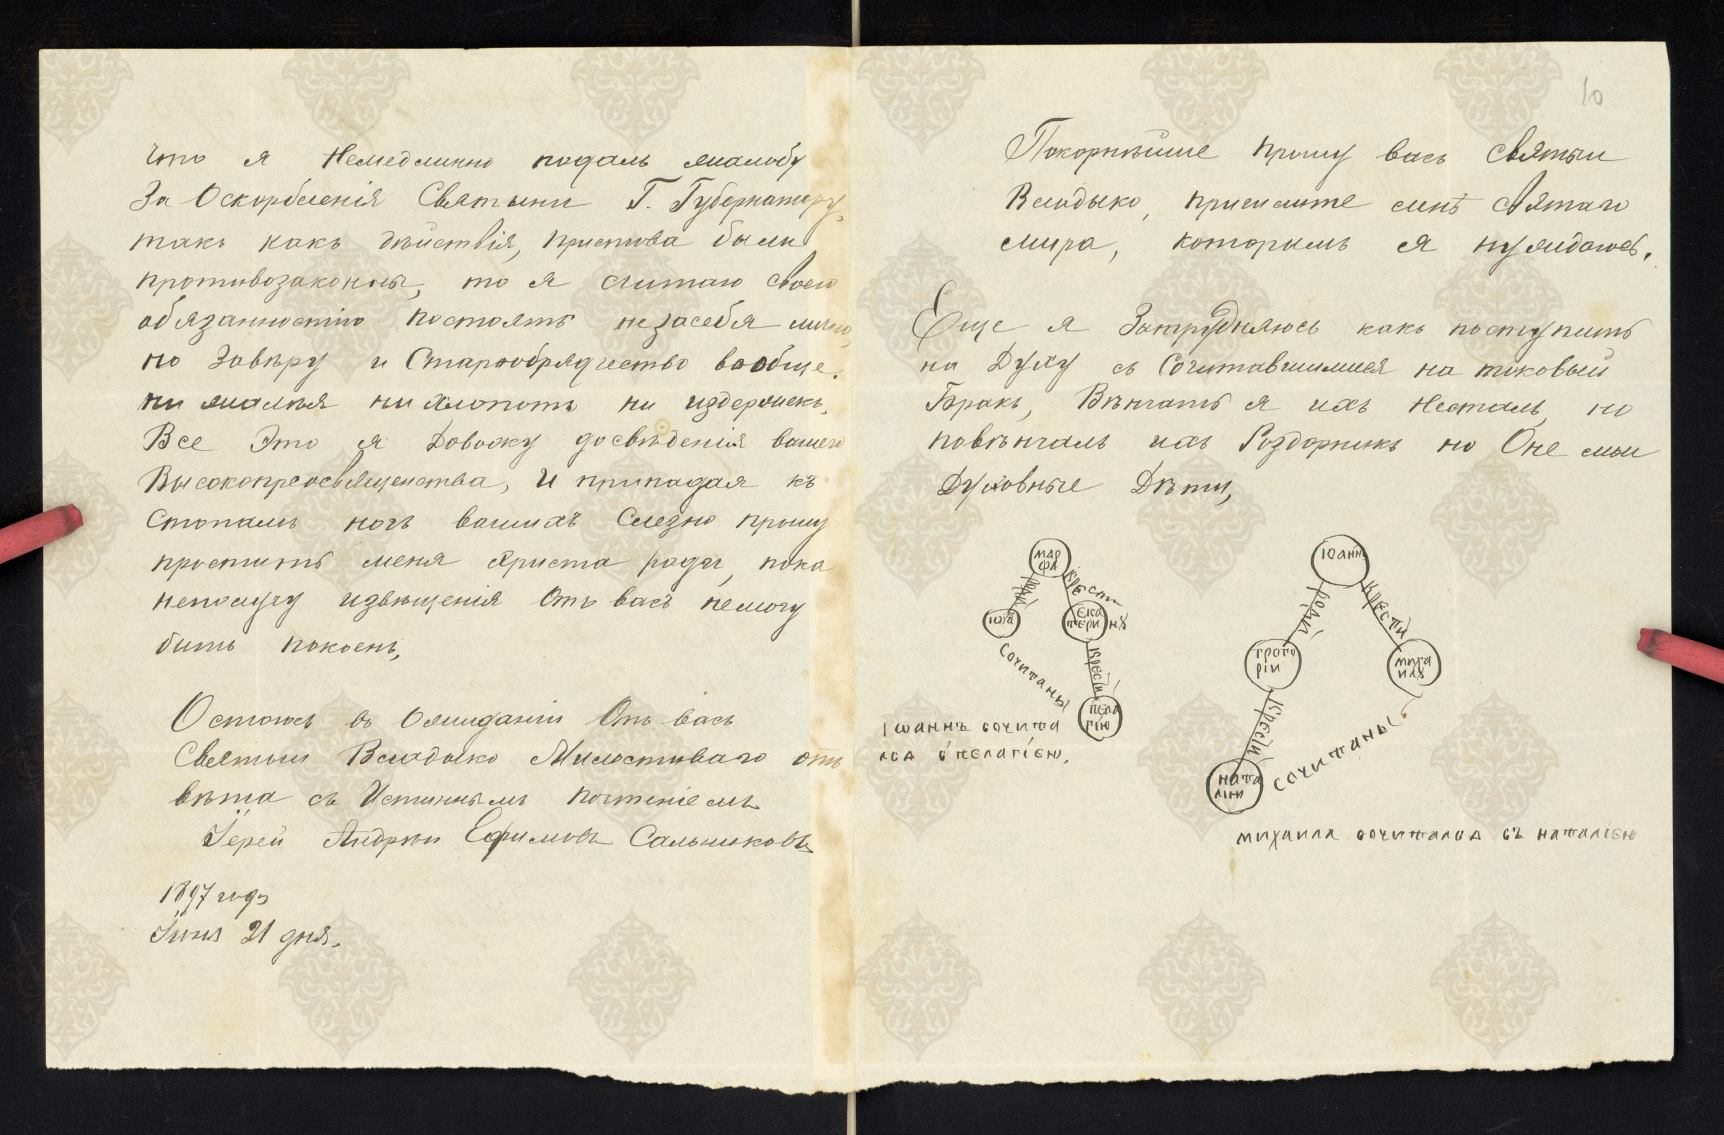 что я Немедлинно подалъ жалобу
За Оскорбленія Святыни Г. Губернатору,
такъ какъ дѣйствія, пристова были
противозаконны, то я считаю своею
обязанностію постоять не засебя лично,
но Завѣру и Старообрядчество вообще.
ни жалѣя ни хлопотъ ни издержекъ,
Все Это я Довожу досвѣденія вашего
Высокопреосвященства, И припадая къ
стопамъ ногъ вашихъ Слезно прошу
простить меня Христа ради, пока
неполучу извѣщенія Отъ васъ немогу
быть покоенъ,
Остаюсь въ Ожиданіи Отъ васъ
Святыи Владыко Милостиваго отъ
вѣта съ Истиннымъ почтеніемъ
Іерей Андрѣи Ефимовъ Сальниковъ
1897 годъ
Іюня 21 дня.
10
Покорнѣише прошу васъ Святыи
Владыко, пришлите мнѣ святаго
мира, которымъ я нуждаюсь.
Еще я Затрудняюсь какъ поступить
на Духу съ Сочитавшимися на таковый
Бракъ, Вѣнчать я ихъ Несталъ, но
повѣнчалъ ихъ Роздорникъ но Оне мои
Духовные Дѣти,
мар
фа
роди
крести
іѡа
ека
тери нꙋ
сочитаны
крести
пела
гію
Іѡаннъ сочита
лсѧ с пелагіею.
Іоанн
роди
крести
григо
ріи
миха
илꙋ
крести
сочитаны
ната
ліи
михаила сочиталсѧ съ наталіею